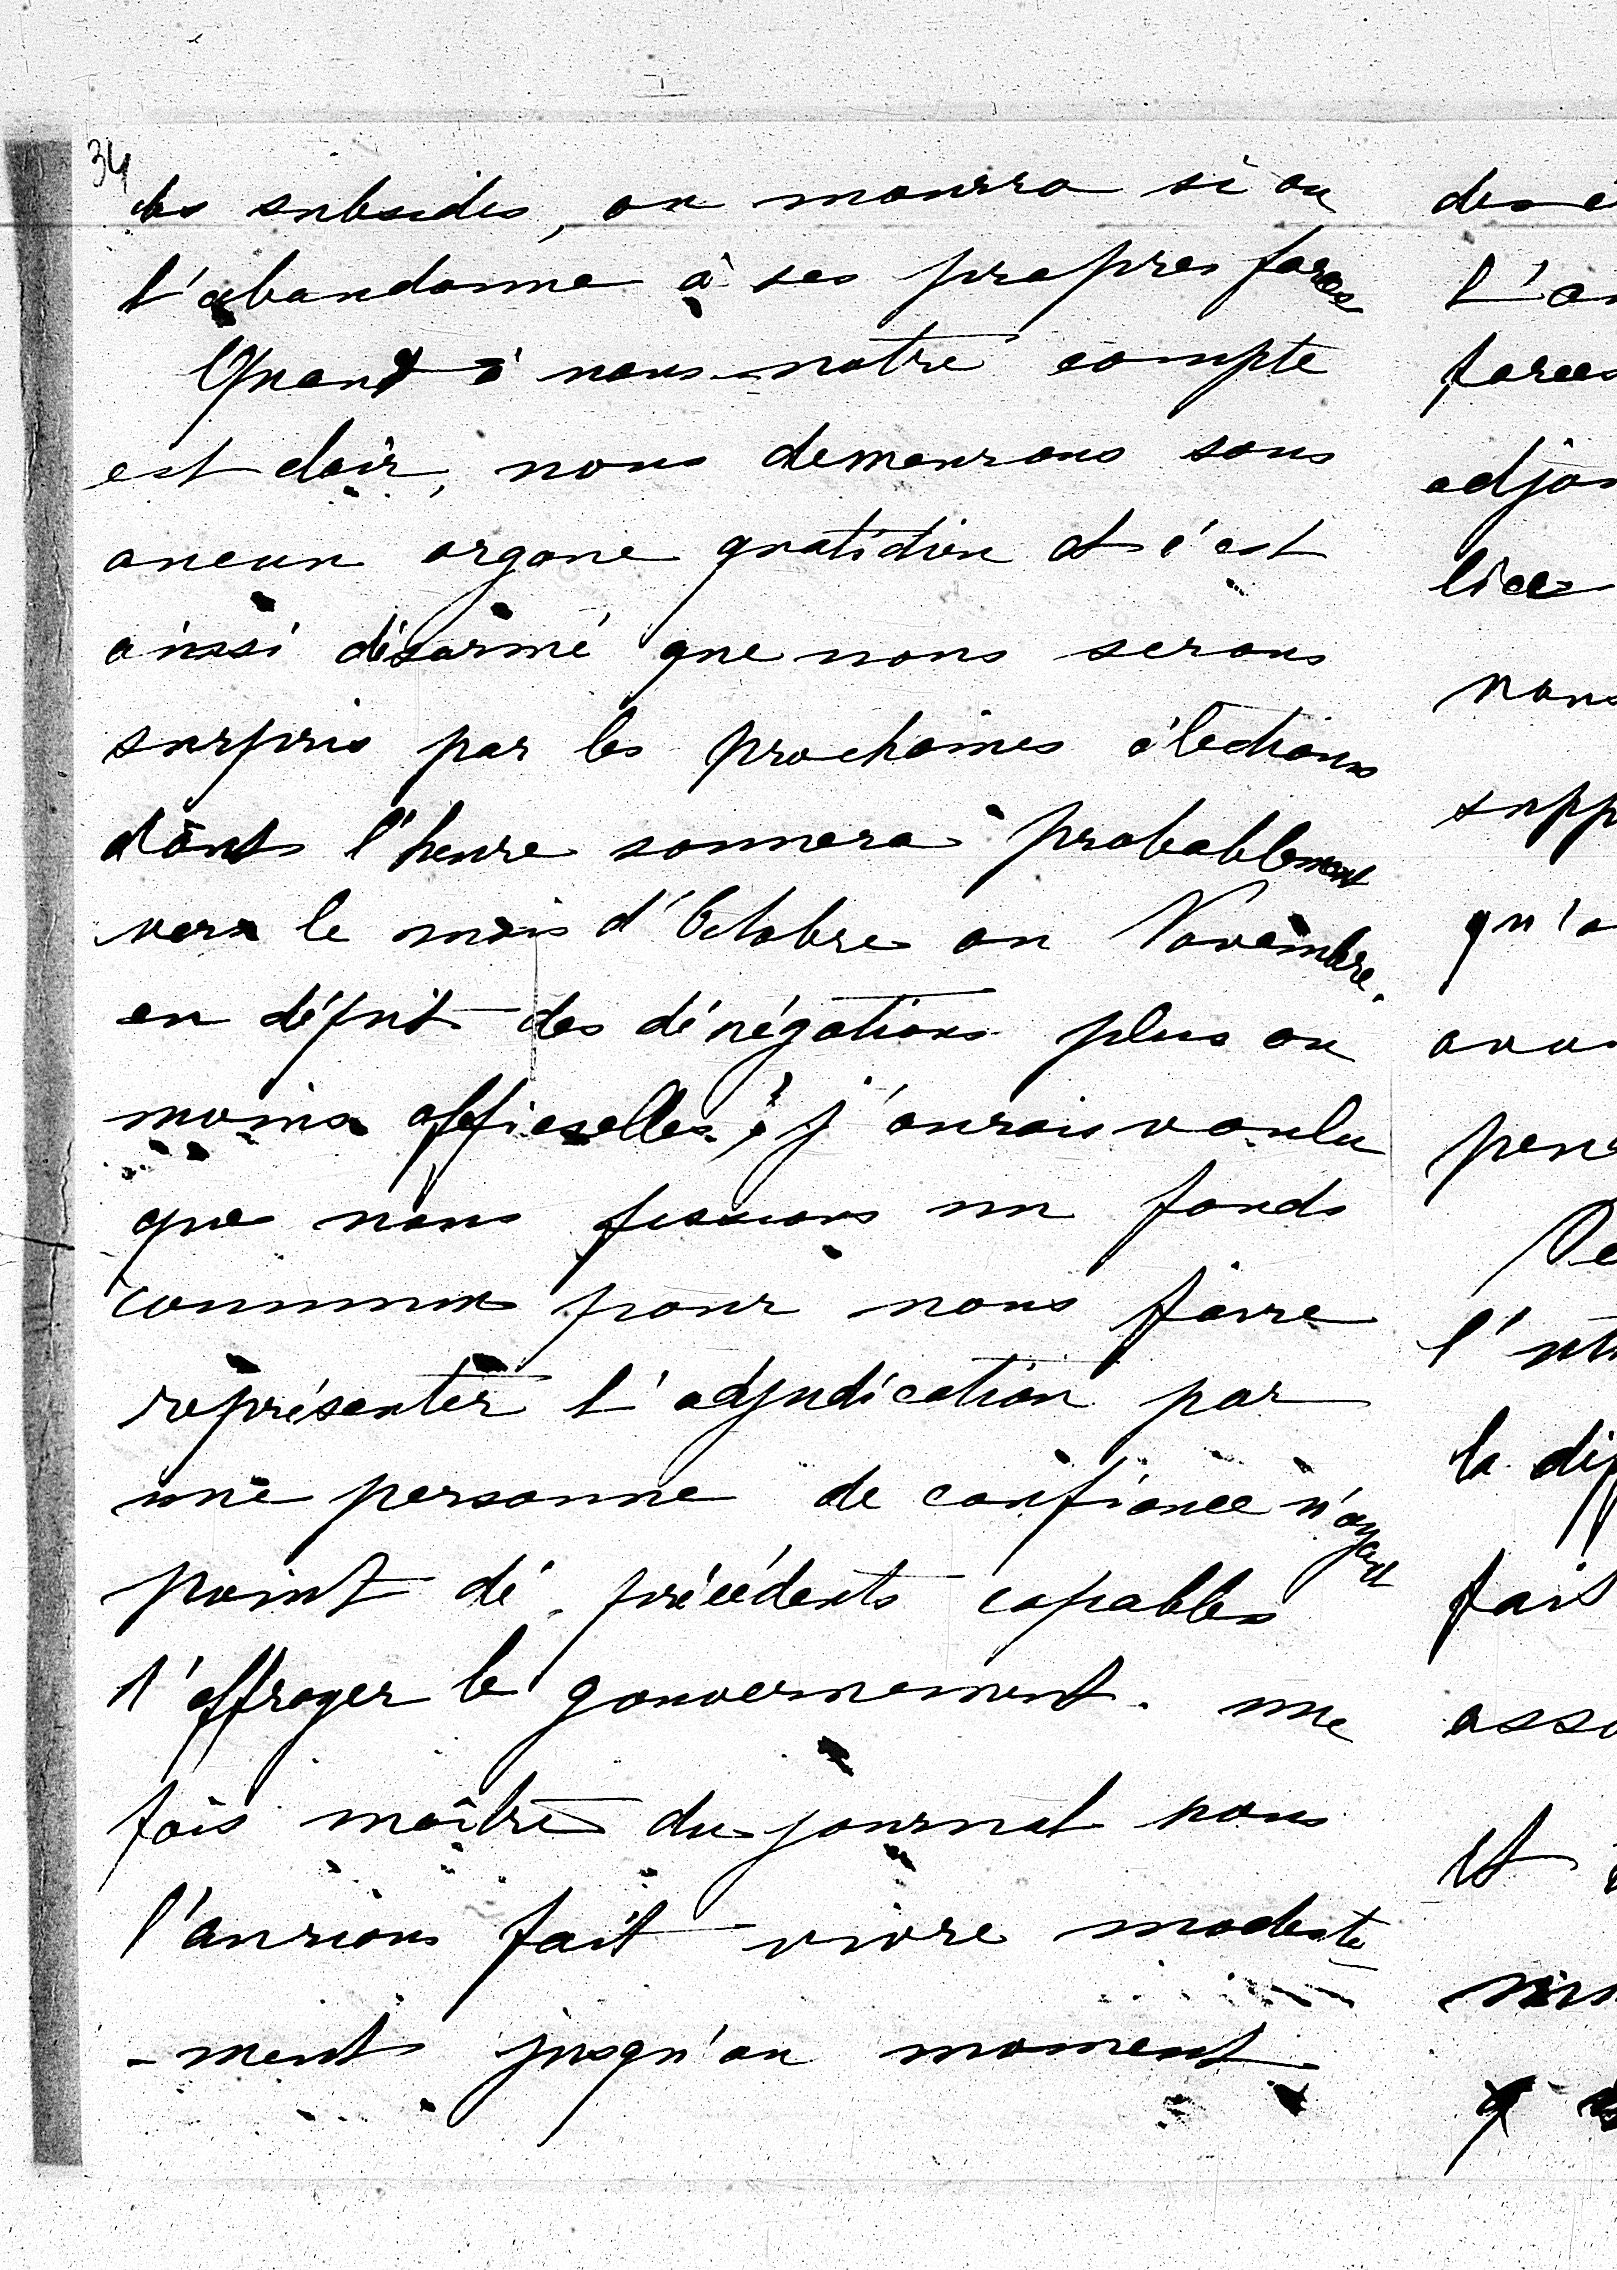 34
des subsides, ou mourra si on
l'abandonne à ses propres forces
Quant à nous notre compte
est clair, nous demeurons sans
aucun organe quotidien et c'est
ainsi désarmé que nous serons
surpris par les prochaines élections
dont l'heure sonnera probablement
vers le mois d'Octobre ou Novembre.
en dépit des dénégations plus ou
moins officielles; j'aurais voulu
que nous fissions un fonds
commun pour nous faire
représenter l'adjudication par
une personne de confiance n'ayant
point de précédents capables
d'effrayer le gouvernement. une
fois maître du journal nous
l'aurions fait vivre modeste
-ment jusqu'au moment
des é
forces
adjo
lice
nous
supp
qu'a
pen
De
la dif
fais
asso
et